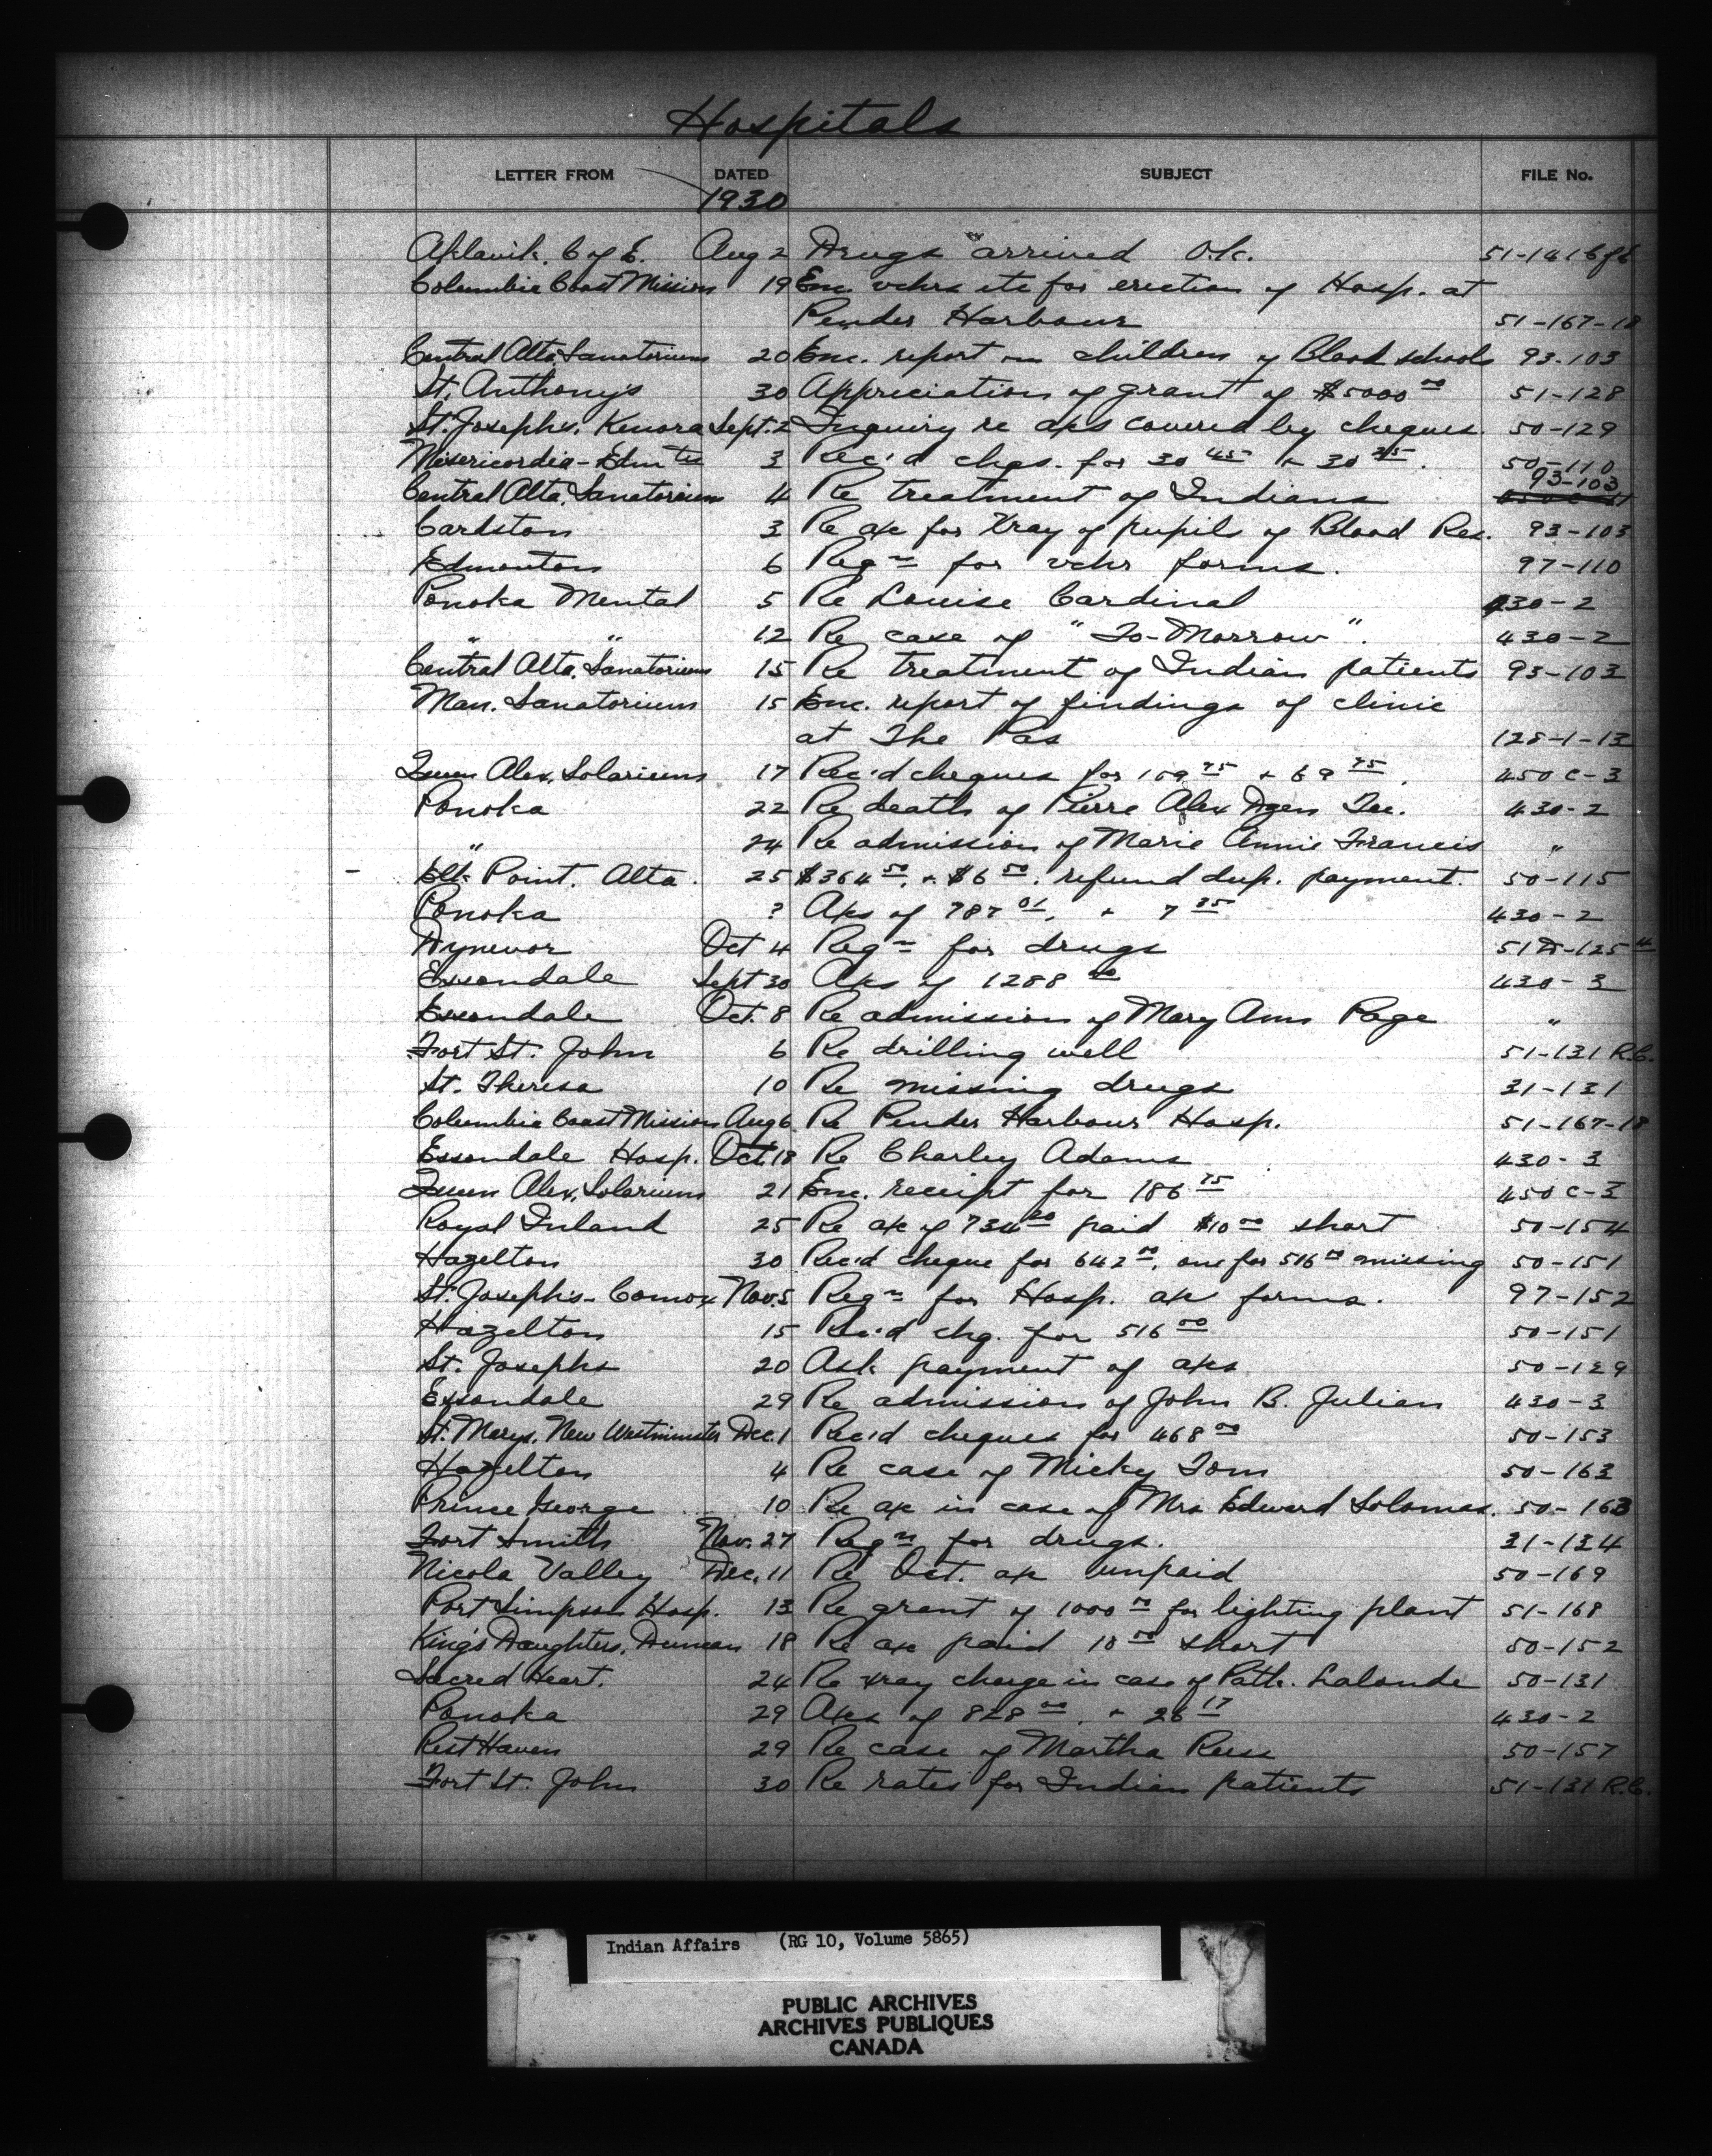 Hospitals
LETTER FROM DATED SUBJECT FILE No.
1930
Aklavik. C of E. Aug 2 Drugs arrived O.k. 51-141 C of E
Columbia Coast Mission 19 Enc. vchrs etc for erection of Hosp. at
Pender Harbour 51-167-18
Central Alta Sanatorium 20 Enc. report on children of Blood schools 93-103
St. Anthony's 30 Appreciation of grant of $5000 00 51-128
St. Josephs. Kenora Sept. 2 Inquiry re aks covered by cheques. 50-129
Misericordia-Edmton 3 Rec'd chqs. for 30 45 + 30 25. 50-110
Central Alta. Sanatorium 4 Re treatment of Indians 93-103
Cardston 3 Re ak for Xray of pupils of Blood Res. 93-103
Edmonton 6 Reqn for vchr forms. 97-110
Ponoka Mental 5 Re Louise Cardinal 430-2
" " 12 Re case of "To-Morrow". 430-2
Central Alta. Sanatorium 15 Re treatment of Indian patients 93-103
Man. Sanatorium 15 Enc. report of findings of clinic
at The Pas 128-1-13
Queen Alex. Solarium 17 Rec'd cheques for 159 75 + 69 75. 450 C-3
Ponoka 22 Re death of Pierre Alex 430-2
" 24 Re admission of Marie Annie Francis "
Elk Point. Alta. 25 $364 50. + $6 50. refund dup. payment. 50-115
Ponoka ? Aks of 787 01. + 7 85 430-2
Dynevor Oct 4 Reqn for drugs 51 D-125 4
Essondale Sept 30 Aks of 1288 00 430-3
Essondale Oct. 8 Re admission of Mary Ann Page "
Fort St. John 6 Re drilling well 51-131 R.C.
St. Theresa 10 Re missing drugs 31-131
Columbia Coast Mission Aug 6 Re Pender Harbour Hosp. 51-167-18
Essondale Hosp. Oct. 18 Re Charley Adams 430-3
Queen Alex. Solarium 21 Enc. receipt for 186 75 450 C-3
Royal Inland 25 Re ak of 734 20 paid $10 00 short 50-154
Hazelton 30 Rec'd cheque for 642 00. one for 516 00 missing 50-151
St. Joseph's-Comox Nov. 5 Reqn for Hosp. ak forms. 97-152
Hazelton 15 Rec'd chq. for 516 00 50-151
St. Josephs 20 Ask payment of aks 50-129
Essondale 29 Re admission of John B. Julian 430-3
St. Marys. New Westminster Dec. 1 Rec'd cheques for 468 00 50-153
Hazelton 4 Re case of Micky Tom 50-163
Prince George 10 Re ak in case of Mrs Edward Solomas. 50-163
Fort Smith Nov. 27 Reqn for drugs. 31-134
Nicola Valley Dec. 11 Re Oct. ak unpaid 50-169
Port Simpson Hosp. 13 Re grant of 1000 00 for lighting plant 51-168
King's Daughters, Duncan 18 Re ak paid 10 00 short 50-152
Sacred Heart. 24 Re xray charge in case of Path. Lalonde 50-131
Ponoka 29 Aks of 828 00. + 26 17 430-2
Rest Haven 29 Re case of Martha Reese 50-157
Fort St. John 30 Re rates for Indian patients 51-131 R.C.
Indian Affairs (RG 10, Volume 5865)
PUBLIC ARCHIVES
ARCHIVES PUBLIQUES
CANADA